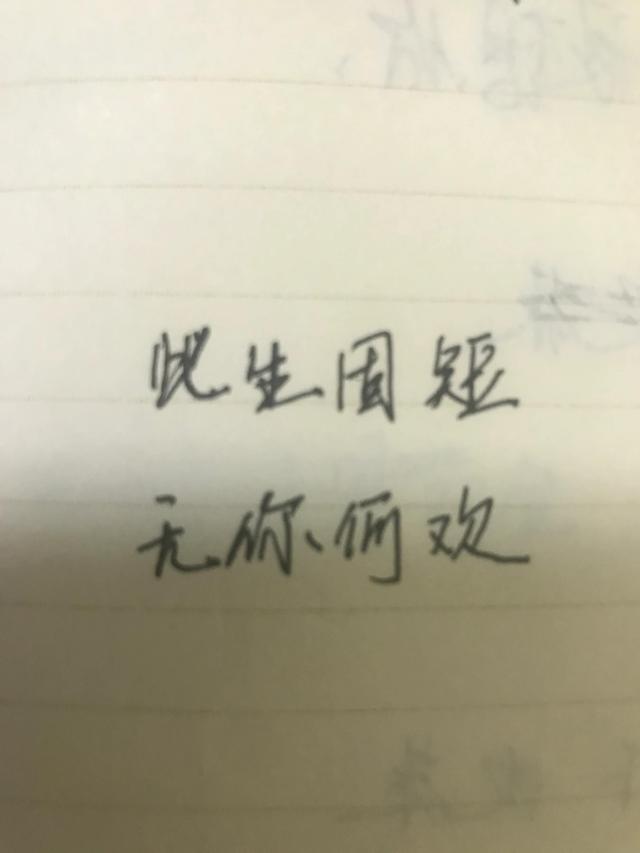 此生固短
无你何欢